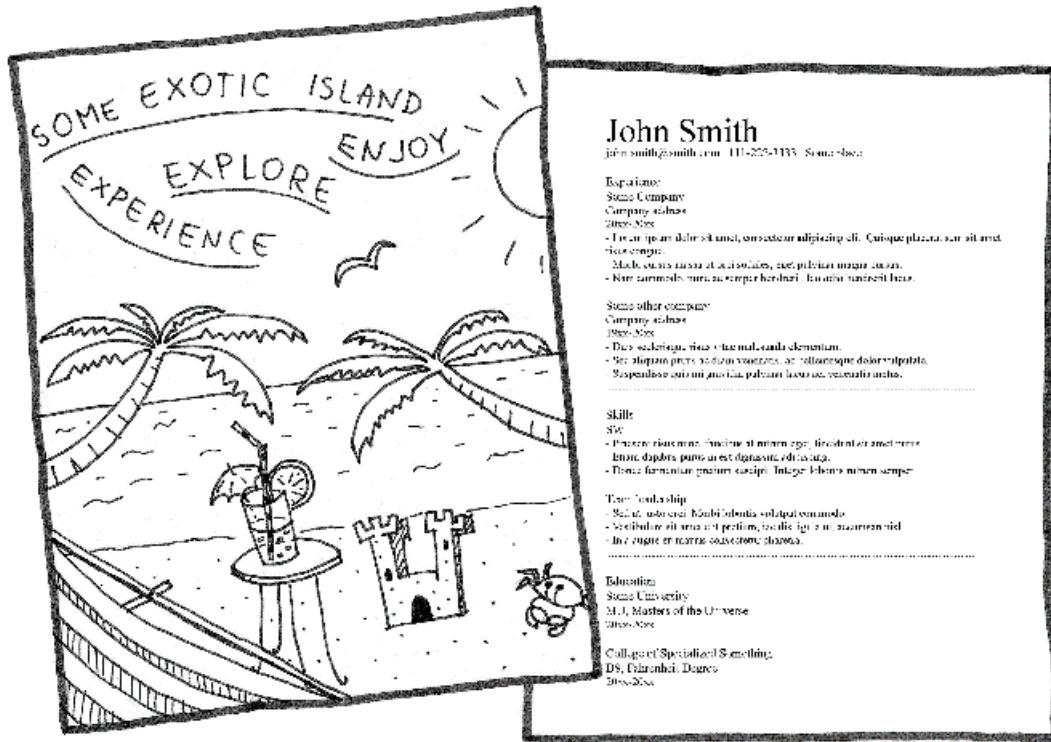 SOME EXOTIC ISLAND
ENJOY
EXPLORE
EXPERIENCE
John Smith
john.smith@smith.com 111-223-3333 Some place
Experience
Some Company
Company address
20xx-20xx
- Lorem ipsum dolor sit amet, consectetur adipiscing elit. Quisque placerat sem sit amet
risus congue.
- Morbi cursus massa ut orci sodales, eget pulvinar magna cursus.
- Nam commodo, nunc semper hendrerit, leo odio hendrerit lacus.
Some other company
Company address
19xx-20xx
- Duis scelerisque risus vitae malesuada elementum.
- Sed aliquam purus ac diam venenatis, ac pellentesque dolor vulputate.
- Suspendisse quis mi gravida, pulvinar lacus nec venenatis metus.
Skills
SW
- Praesent risus nunc, faucibus at rutrum eget, tincidunt sit amet purus.
- Etiam dapibus purus in est dignissim adipiscing.
- Donec fermentum pretium suscipit. Integer lobortis rutrum semper.
Team leadership
- Sed at justo orci. Morbi lobortis volutpat commodo.
- Vestibulum sit amet pretium, iaculis ligula ut, accumsan nisl.
- In augue et mattis consectetur pharetra.
Education
Some University
M.U, Masters of the Universe
20xx-20xx
College of Specialized Something
DS, Fahrenheit Degree
20xx-20xx